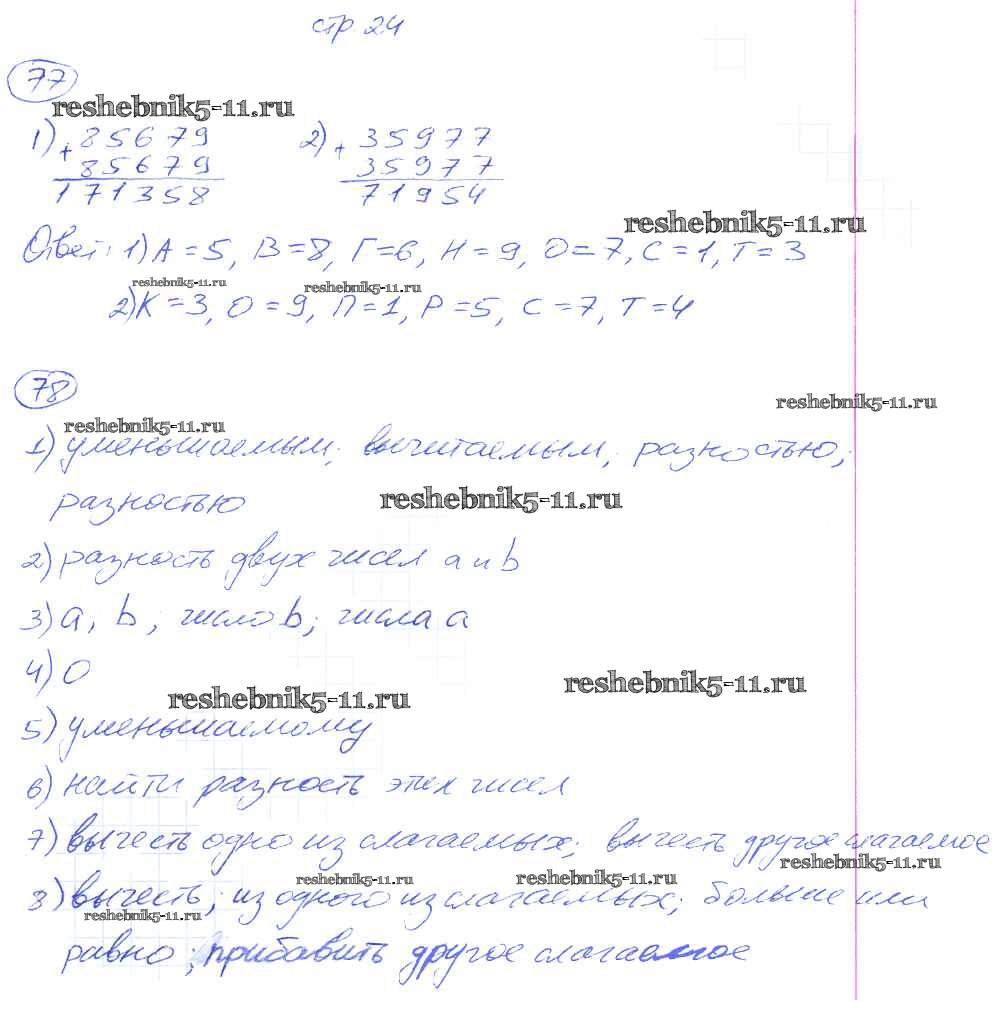 стр 24
77
reshebnik5-11.ru
1) + 85679 2) + 35977
85679 35977
171358 71954
reshebnik5-11.ru
Ответ: 1) А=5, В=8, Г=6, Н=9, О=7, С=1, Т=3
reshebnik5-11.ru reshebnik5-11.ru
2) К=3, О=9, П=1, Р=5, С=7, Т=4
78
reshebnik5-11.ru
reshebnik5-11.ru
1) уменьшаемым; вычитаемым; разностью;
reshebnik5-11.ru
разностью
2) разность двух чисел a и b
3) a, b; число b; числа a
4) 0
reshebnik5-11.ru reshebnik5-11.ru
5) уменьшаемому
6) найти разность этих чисел
7) вычесть одно из слагаемых; вычесть другое слагаемое
reshebnik5-11.ru
reshebnik5-11.ru reshebnik5-11.ru
8) вычесть; из одного из слагаемых; больше или
reshebnik5-11.ru
равно; прибавить другое слагаемое